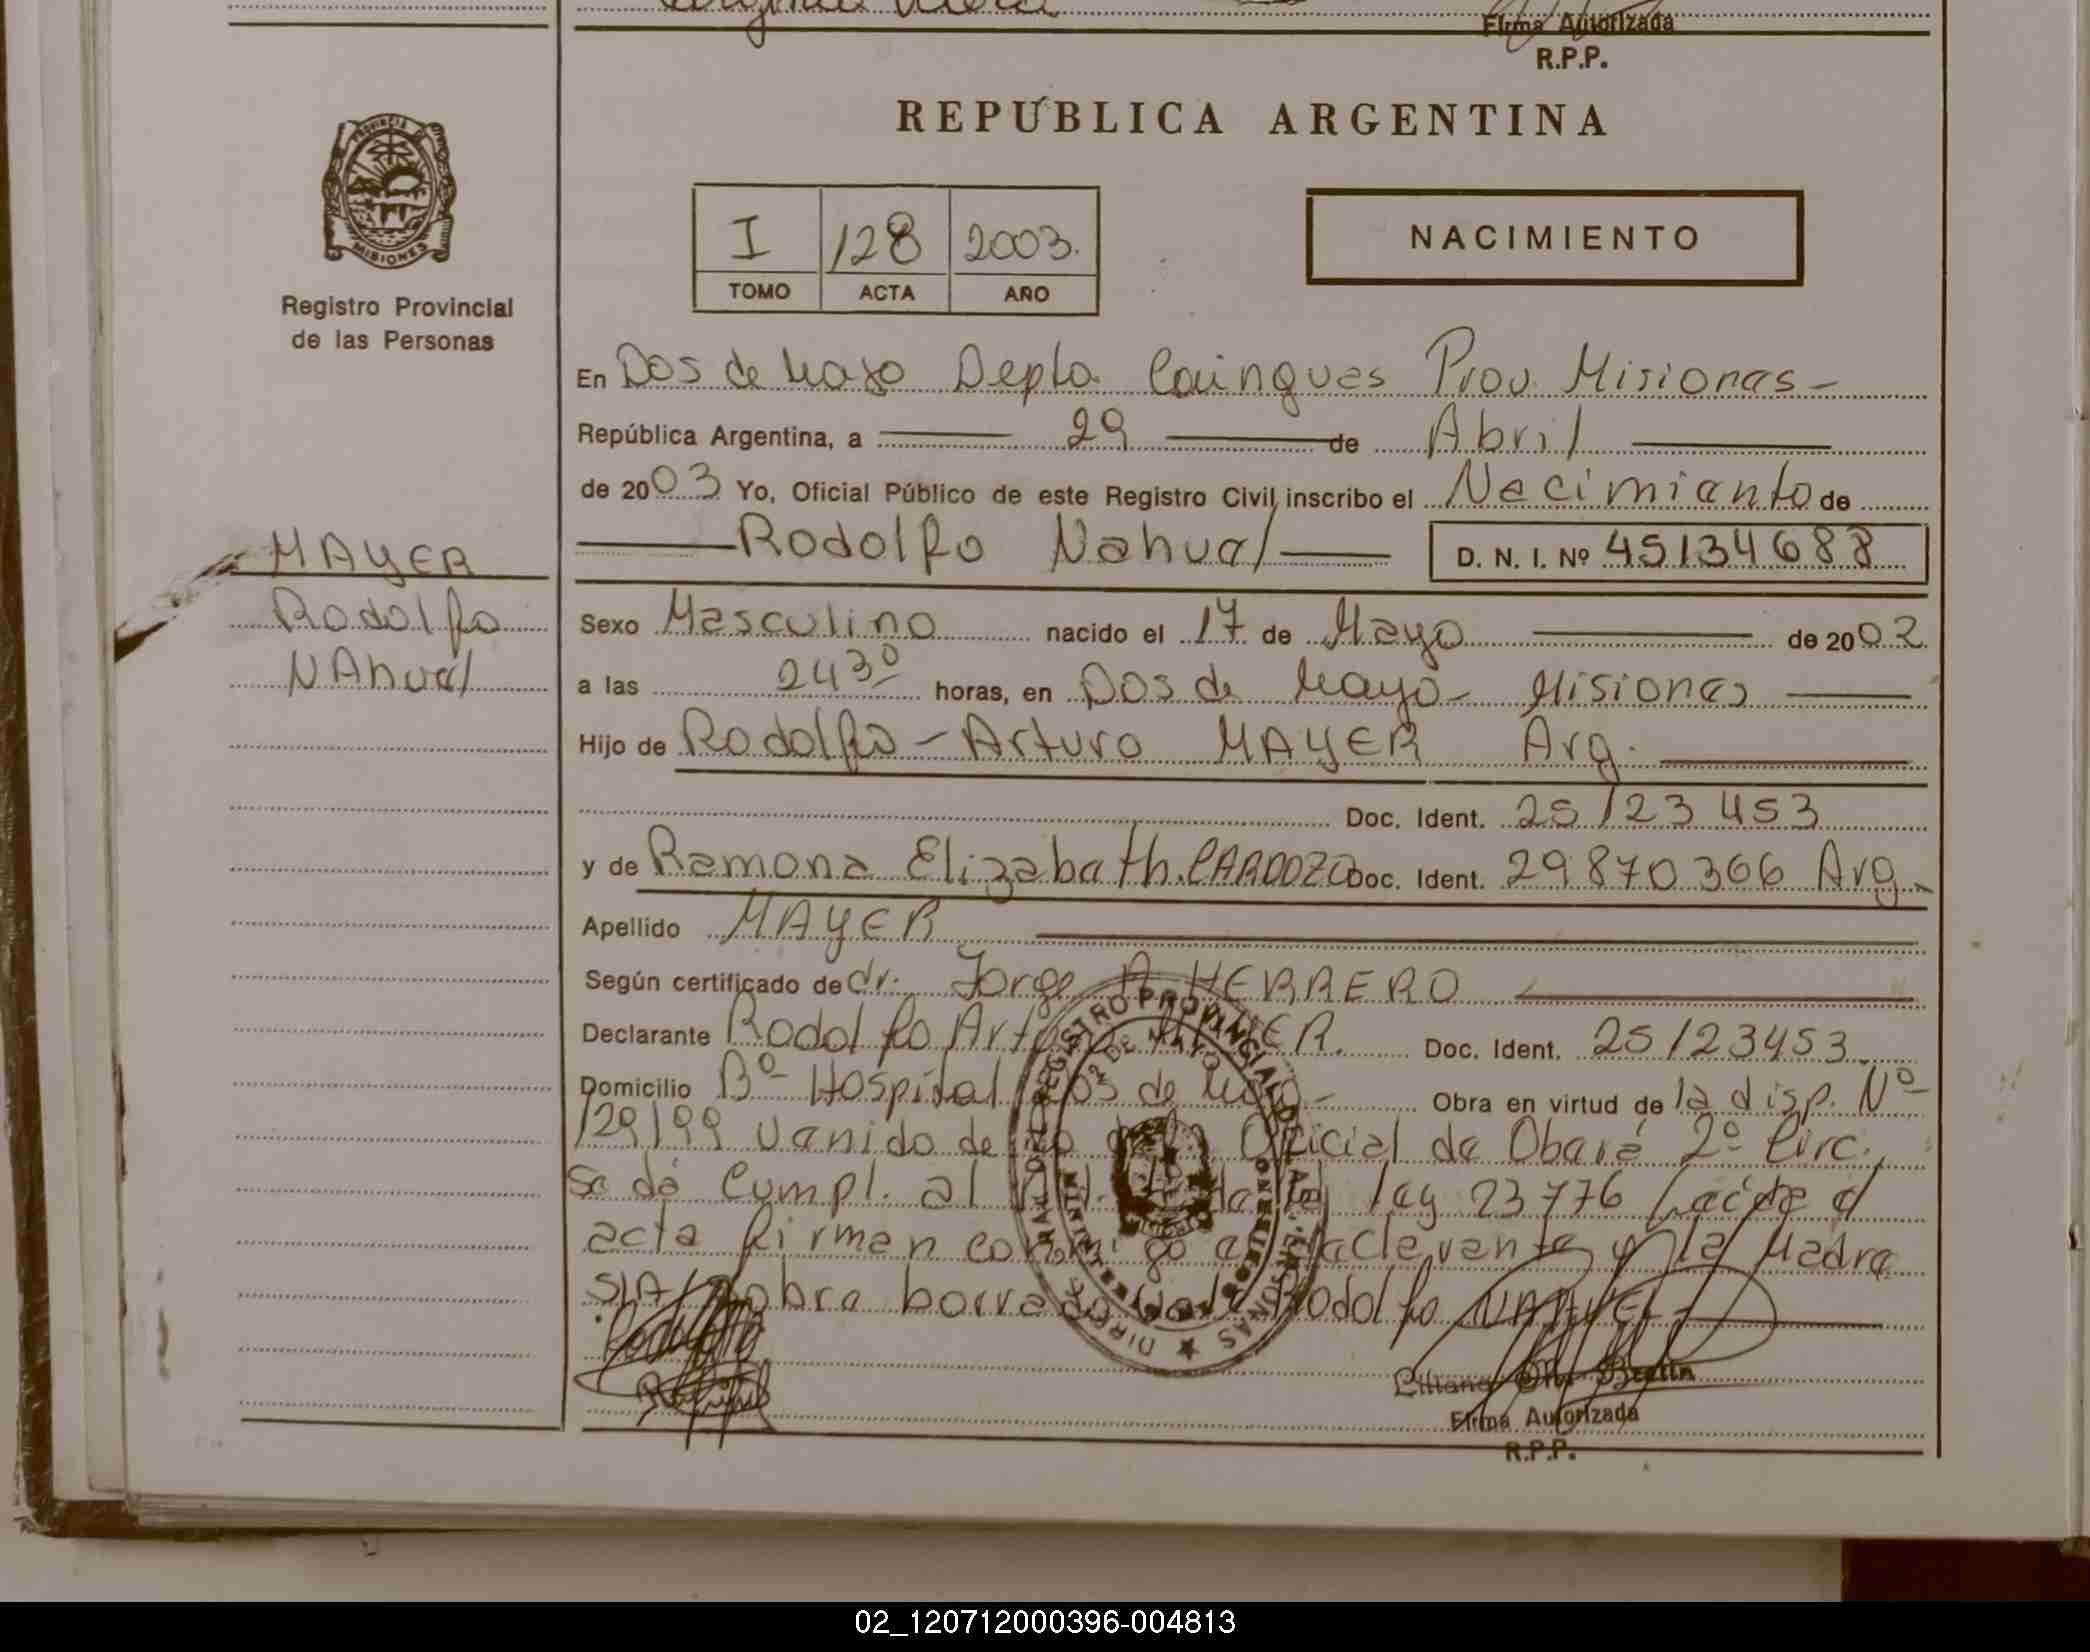 Firma Autorizada
R.P.P.
PROVINCIA DE
MISIONES
Registro Provincial
de las Personas
REPUBLICA ARGENTINA
I 128 2003.
TOMO ACTA AÑO
NACIMIENTO
En Dos de Mayo Depto. Cainguas Prov. Misiones -
República Argentina, a 29 de Abril
de 2003 Yo, Oficial Público de este Registro Civil inscribo el Nacimiento de
Rodolfo Nahual D. N. I. Nº 45134688
MAYER
Rodolfo
NAhual
Sexo Masculino nacido el 17 de Mayo de 2002
a las 24 30 horas, en Dos de Mayo - Misiones
Hijo de Rodolfo - Arturo MAYER Arg.
Doc. Ident. 25123453
y de Ramona Elizabeth. CARDOZO Doc. Ident. 29870366 Arg.
Apellido MAYER
Según certificado de dr. Jorge A HERRERO
Declarante Rodolfo Arturo MAYER. Doc. Ident. 25123453.
Domicilio Bº Hospital Dos de Mayo - Obra en virtud de la disp. Nº
129/99 Venido de Oficial de Oberá 2º Circ.
Se dá Cumpl. al ley 23776 Leída el
acta firman conmigo el declarante y la Madre
S/A/ Sobre borrado Vale Rodolfo
REGISTRO PROVINCIAL DE LAS PERSONAS
2 DE MAYO
MISIONES
Firma Autorizada
R.P.P.
02_120712000396-004813